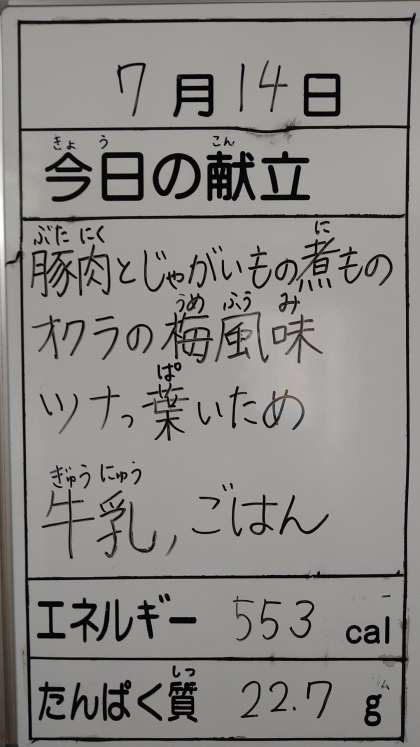 7月14日
きょ う こん
今日の献立
ぶた にく に
豚肉とじゃがいもの煮もの
うめ ふう み
オクラの梅風味
ぱ
ツナっ葉いため
ぎゅう にゅう
牛乳, ごはん
エネルギー 553 cal
しつ
たんぱく質 22.7 g